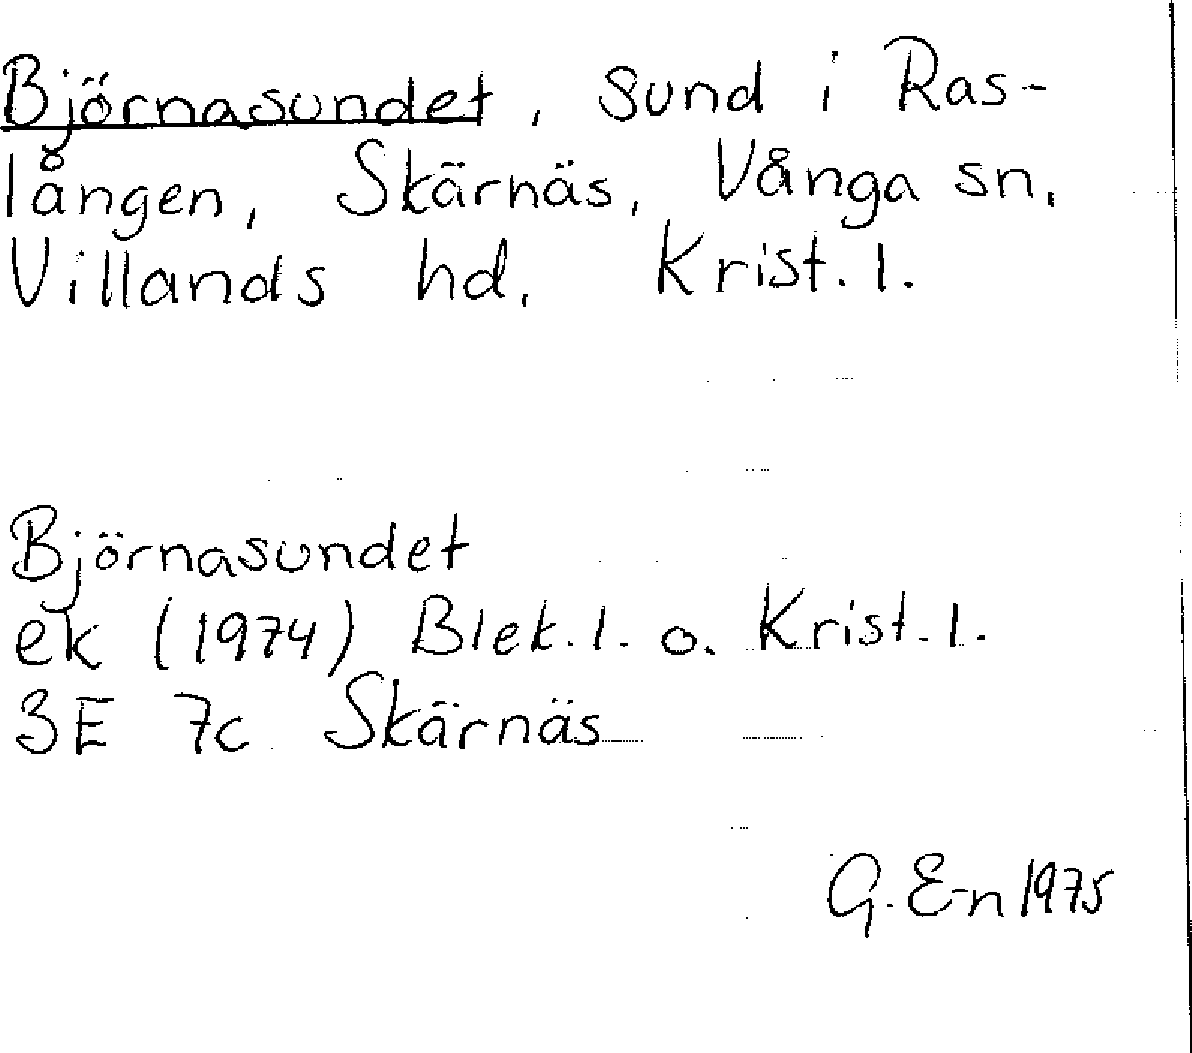 Björnasundet, sund i Ras-
lången, Skärnäs, Vånga sn,
Villands hd, Krist. l.
Björnasundet
ek (1974) Blek. l. o. Krist. l.
3E 7c Skärnäs
G. E-n 1975